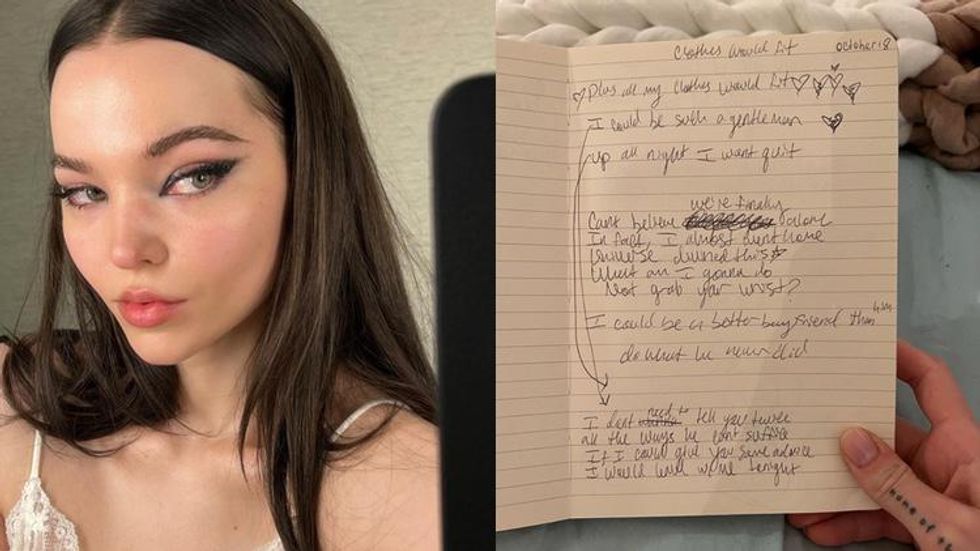 Clothes would fit October 18
Plus all my clothes would fit
I could be such a gentleman
up all night I wont quit
we're finally
Cant believe alone
In fact, I almost went home
Universe this
What am I gonna do
Not grab your wrist?
him
I could be a better boyfriend than
do what he never did
need to
I dont tell you twice
all the ways he cant suffice
If I could give you some advice
I would leave w/me tonight
none of